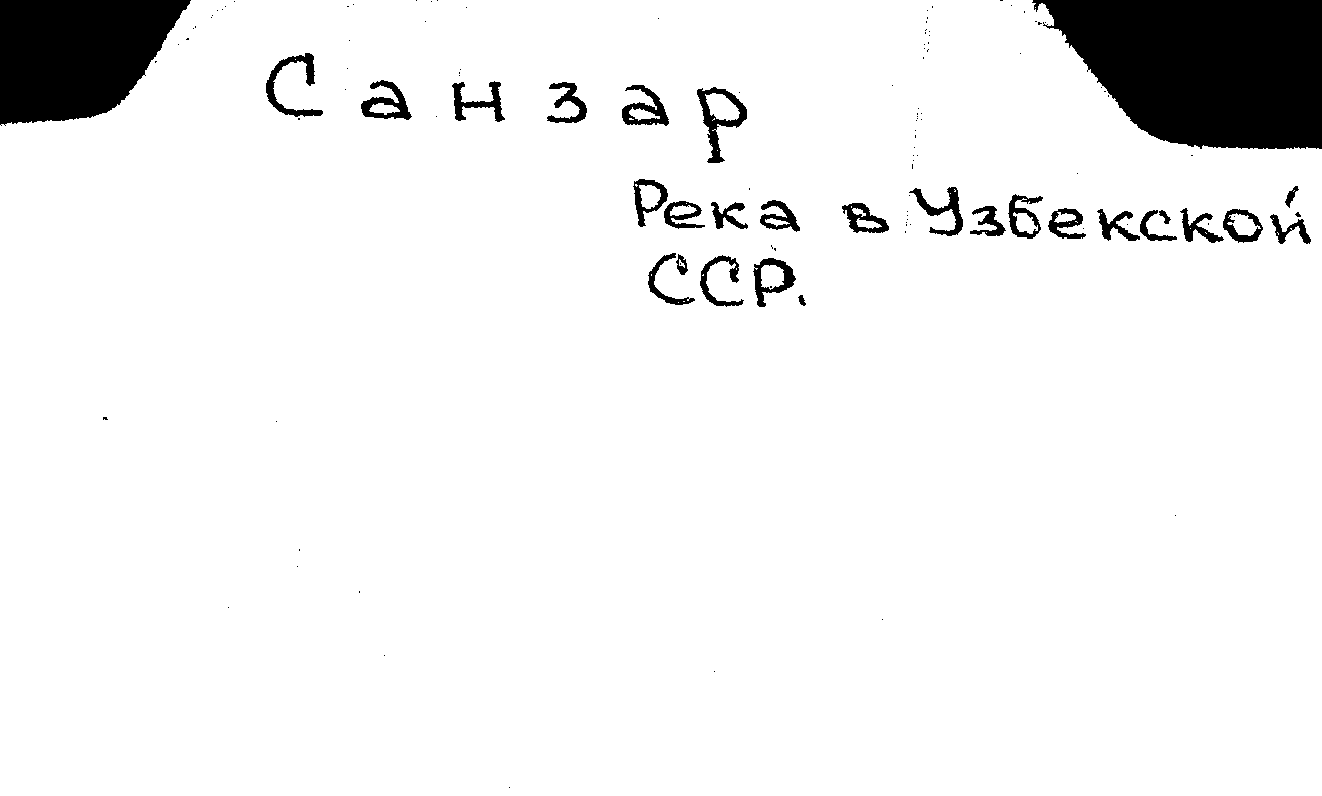 Санзар
Река в Узбекской
ССР.